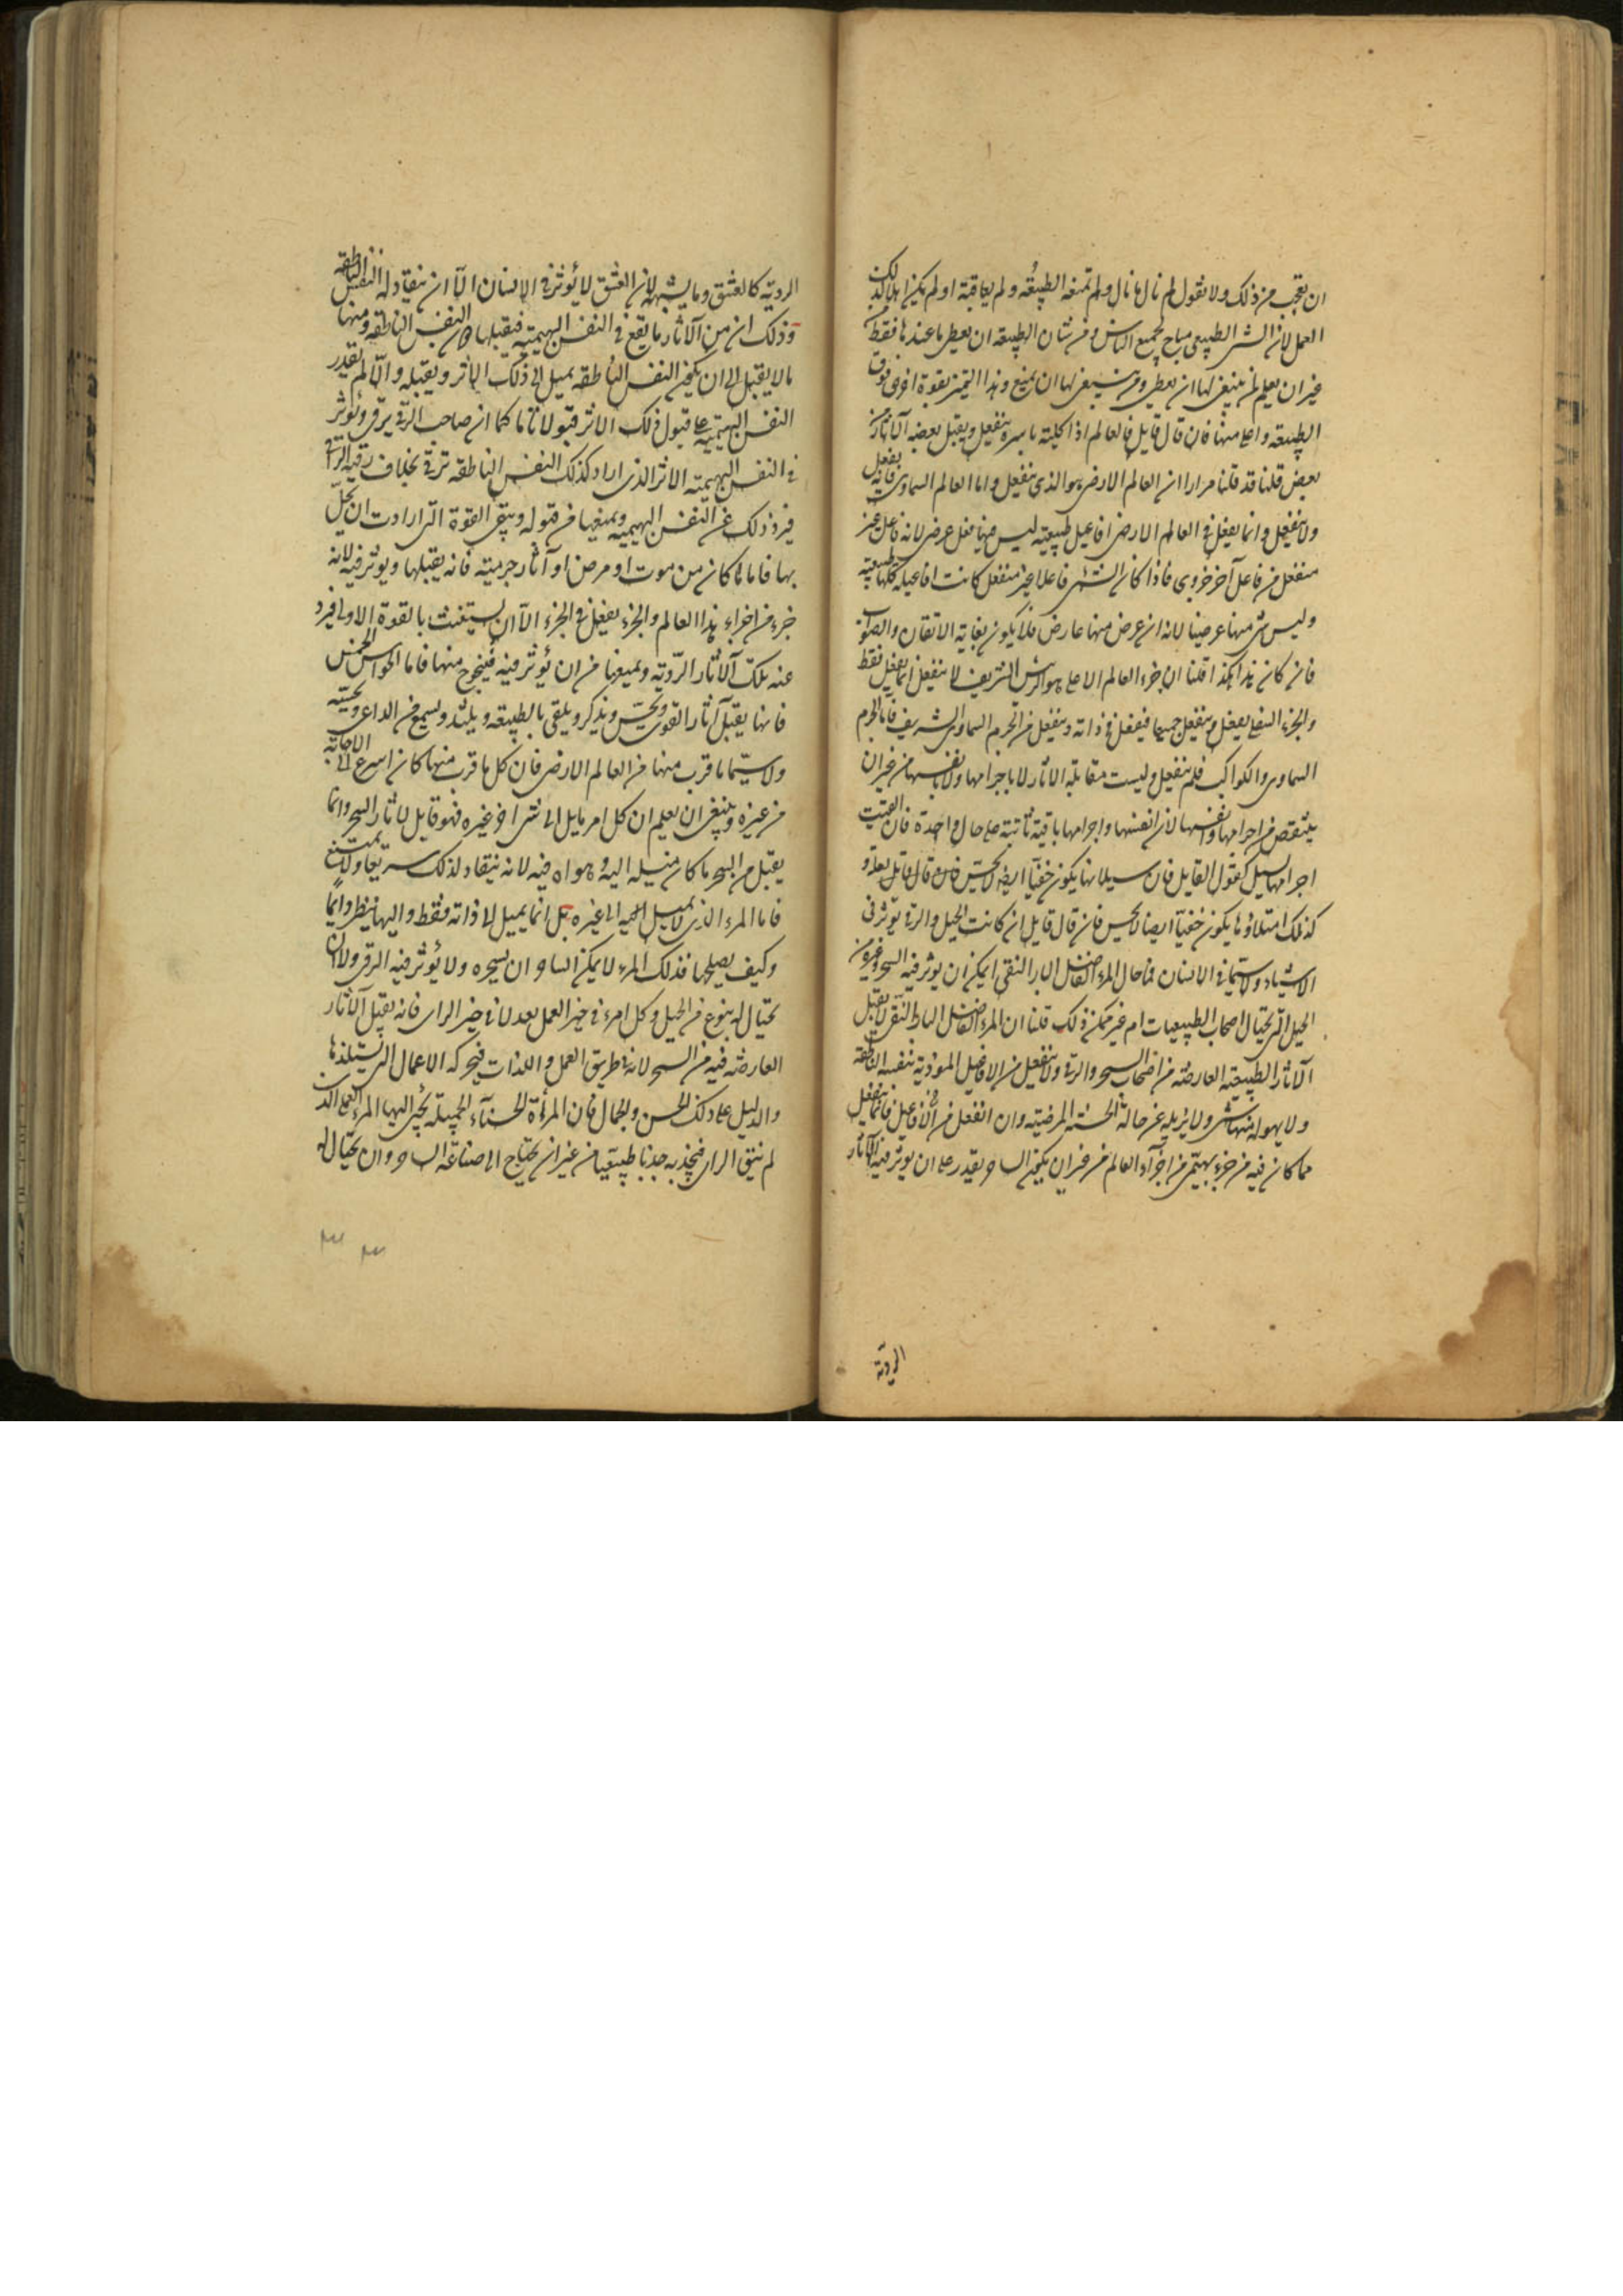 ان يعجب من ذلك ولا نقول لم نال ما نال ولم تمنعه الطبيعة ولم يعاقبه او لم يكن اهلا لذلك
العمل لان الشئ الطبيعى مباح لجميع الناس ومن شان الطبيعة ان يعطى ما عندها فقط من
غير ان يعلم لمن ينبغى لها ان يعطى ومن ينبغى لها ان يمنع وهذا التميز بقوة اخرى فوق
الطبيعة واعلى منها فان قال قايل فالعالم اذا كليته باسره ينفعل ويقبل بعضه الآثار من
بعض قلنا قد قلنا مرارا ان العالم الارضى هو الذى ينفعل واما العالم السماوى فانه يفعل
ولا ينفعل وانما يفعل فى العالم الارضى افاعيل طبيعية ليس فيها فعل عرضى لانه فاعل غير
منفعل من فاعل آخر جزوى فاذا كان الشئ فاعلا غير منفعل كانت افاعيله كلها طبيعية
وليس شئ منها عرضيا لانه ان عرض منها عارض فلا يكون بغاية الاتقان والصواب
فان كان هذا هكذا قلنا ان جزء العالم الاعلى هو الرئيس الشريف لا ينفعل انما يفعل فقط
والجزء السفلى يفعل وينفعل جميعا فيفعل فى ذاته وينفعل من الجرم السماوى الشريف فاما الجرم
السماوى والكواكب فلم ينفعل وليست مقابلة الاثار لا باجرامها ولا بانفسها من غير ان
ينتقص من اجرامها وانفسها لان انفسها واجرامها باقية ثابتة على حال واحدة فان الفيت
اجرامها تسيل كقول القايل فان سيلانها يكون خفيا ايضا لا يحس فان قال قايل بعلة و
كذلك امتلاؤها يكون خفيا ايضا لا يحس فان قال قايل ان كانت الحيل والرقى يؤثر فى
الاشياء ولاسيما فى الانسان فما حال المرء الفاضل البار النقى ايمكن ان يؤثر فيه السحر وغيره من
الحيل التى يحتال اصحاب الطبيعيات ام غير ممكن ذلك قلنا ان المرء الفاضل البار النقى لا يقبل
الآثار الطبيعية العارضة من اصحاب السحر والرقى ولا ينفعل من الافاعيل الموذية بنفسه الناطقة
ولا يهوله منها شئ ولا يزيله عن حاله الحسنة المرضية وان انفعل من الافاعيل فانما ينفعل
مما كان فيه من جزء بهيمى من اجزآء العالم من غير ان يكون الساحر يقدر على ان يؤثر فيه الآثار
الردية
الردية كالعشق وما يشبهه لان العشق لا يؤثر فى الانسان الا ان ينقاد له النفس الناطقة
وذلك ان من الآثار ما يقع فى النفس البهيمية فيقبلها النفس الناطقة ومنها
ما لا يقبل الا ان يكون النفس الناطقة يميل الى ذلك الاثر ويقبله والا لم يقدر
النفس البهيمية على قبول ذلك الاثر قبولا تاما كما ان صاحب الرقى يرقى ويؤثر
فى النفس البهيمية الاثر الذى اراد كذلك النفس الناطقة ترقى بخلاف رقية الراقى
فيرد ذلك عن النفس البهيمية ويمنعها من قبوله وينقى القوة التى ارادت ان يحل
بها فاما ما كان من موت او مرض او آثار جرمية فانه يقبلها ويؤثر فيه لانه
جزء من اجزاء هذا العالم والجزء يفعل فى الجزء الا ان يستغيث بالقوة الاولى فيرد
عنه تلك الآثار الردية ويمنعها من ان يؤثر فيه فينجو منها فاما الحواس الخمس
فانها يقبل آثار القوى ويحس ويذكر ويلقى بالطبيعة ويلتذ ويسمع من الداعى ويجيبه
ولاسيما ما قرب منها من العالم الارضى فان كل ما قرب منها كان اسرع الى الاجابة
من غيره وينبغى ان يعلم ان كل امر مايل الى شئ آخر غيره فهو قابل لاثار السحر وانما
يقبل من السحر ما كان ميله اليه وهواه فيه لانه ينقاد لذلك سريعا ولا يمتنع
فاما المرء الذى لا يميل الى غيره بل انما يميل الى ذاته فقط واليها ينظر دايما
وكيف يصلحها فذلك المرء لا يمكن الساحر ان يسحره ولا يؤثر فيه الرقى ولا ان
يحتال له بنوع من الحيل وكل امرء فى حيز العمل بعد لا فى حيز الراى فانه يقبل الآثار
العارضة فيه من السحر لانه فى طريق العمل واللذات فيحركه الاعمال التى يستلذها
والدليل على ذلك الحسن والجمال فان المرأة الحسناء الجميلة يجئ اليها المرء العملى الذى
لم ينق الراى فيجذبه جذبا طبيعيا من غير ان يحتاج الى صناعة الساحر وان يحتال له